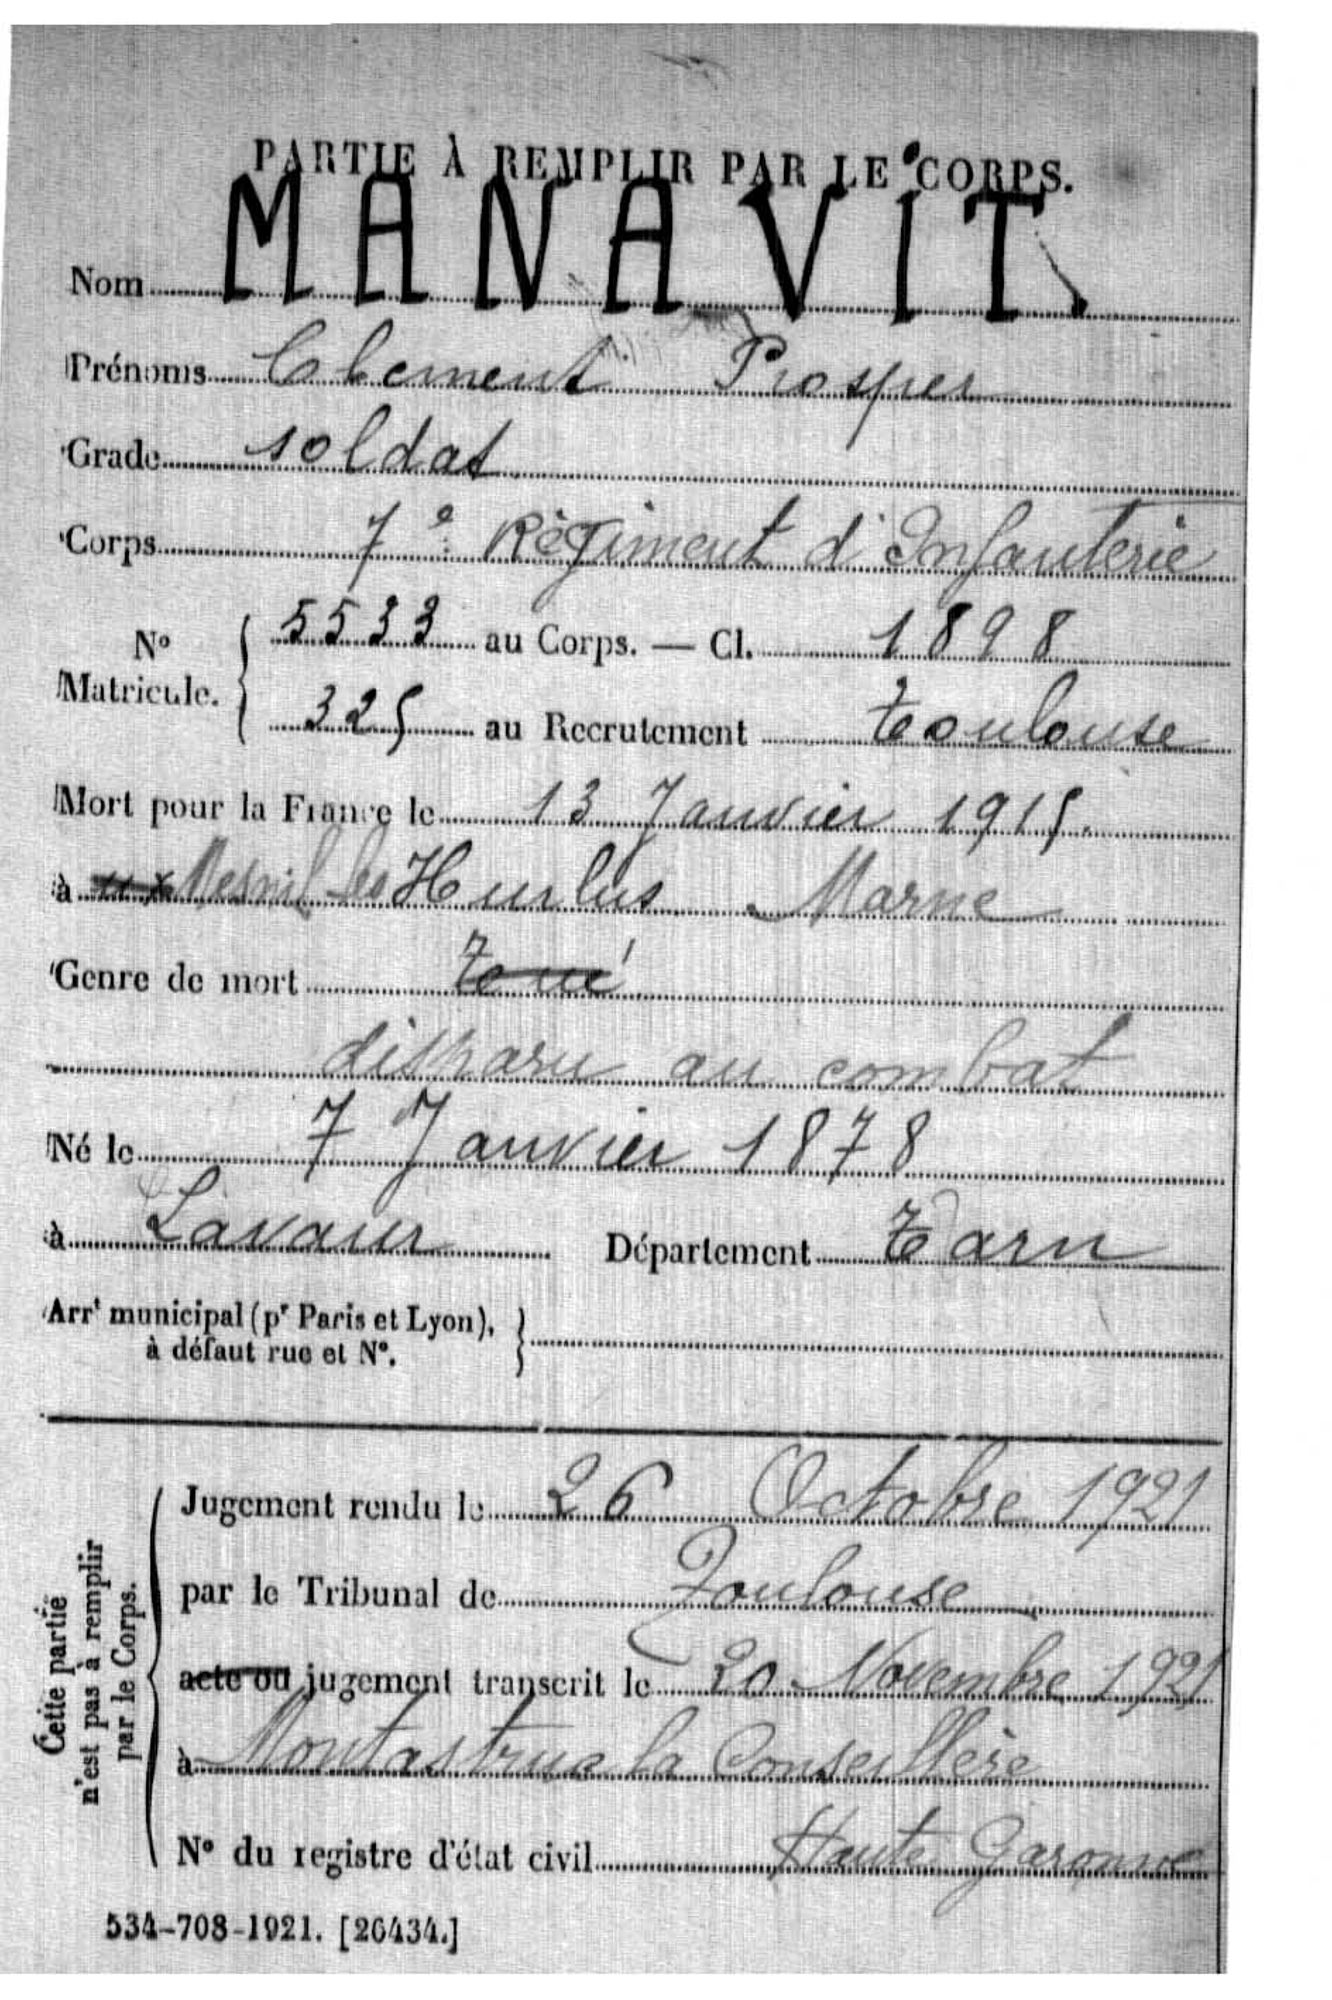 PARTIE À REMPLIR PAR LE CORPS.
Nom MANAVIT.
Prénoms Clement Prosper
Grade soldat
Corps 7e Régiment d'Infanterie
No Matricule. 5533 au Corps. — Cl. 1898
325 au Recrutement Toulouse
Mort pour la France le 13 Janvier 1915.
à Mesnil les Hurlus Marne
Genre de mort Tué
disparu au combat
Né le 7 Janvier 1878
à Lavaur Département Tarn
Arrt municipal (pr Paris et Lyon),
à défaut rue et No.
Cette partie
n'est pas à remplir
par le Corps.
Jugement rendu le 26 Octobre 1921
par le Tribunal de Toulouse
acte ou jugement transcrit le 20 Novembre 1921
à Montastruc la Conseillère
No du registre d'état civil Haute Garonne
534-708-1921. [26434.]